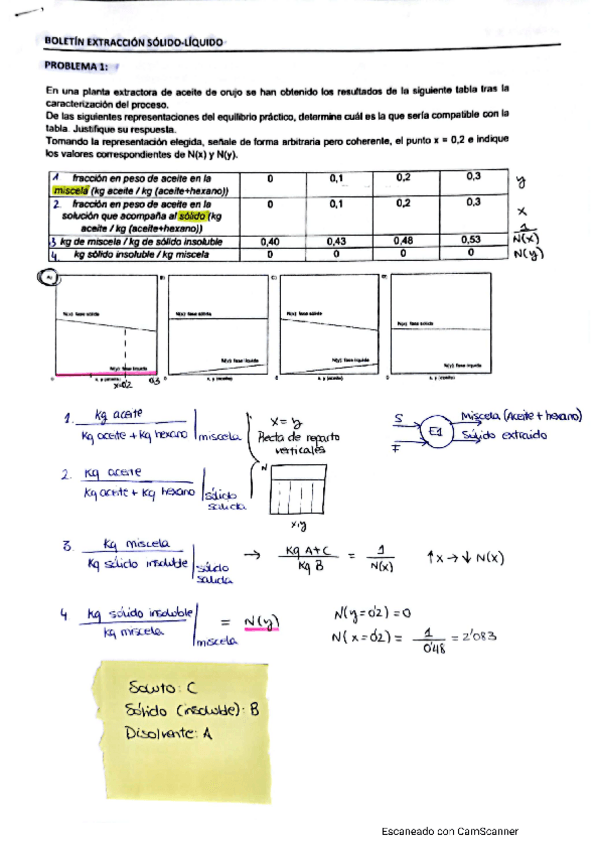 BOLETÍN EXTRACCIÓN SÓLIDO-LÍQUIDO
PROBLEMA 1:
En una planta extractora de aceite de orujo se han obtenido los resultados de la siguiente tabla tras la
caracterización del proceso.
De las siguientes representaciones del equilibrio práctico, determine cuál es la que sería compatible con la
tabla. Justifique su respuesta.
Tomando la representación elegida, señale de forma arbitraria pero coherente, el punto x = 0,2 e indique
los valores correspondientes de N(x) y N(y).
1 fracción en peso de aceite en la
miscela (kg aceite / kg (aceite+hexano)) 0 0,1 0,2 0,3 y
2. fracción en peso de aceite en la
solución que acompaña al sólido (kg
aceite / kg (aceite+hexano)) 0 0,1 0,2 0,3 x
3 kg de miscela / kg de sólido insoluble 0,40 0,43 0,48 0,53 1/N(x)
4. kg sólido insoluble / kg miscela 0 0 0 0 N(y)
A) B) C) D)
N(x) fase sólido N(x) fase sólido N(x) fase sólido N(x) fase sólido
N(y) fase líquido N(y) fase líquido N(y) fase líquido N(y) fase líquido
x, y (aceite) x, y (aceite) x, y (aceite) x, y (aceite)
x=0'2 0'3
1. Kg aceite / Kg aceite + Kg hexano | miscela
x = y
Recta de reparto
verticales
S Miscela (Aceite + hexano)
E1
F Sólido extraido
2. Kg aceite / Kg aceite + Kg hexano | sólido salida
N
x,y
3. Kg miscela / Kg sólido insoluble | sólido salida → Kg A+C / Kg B = 1 / N(x) ↑x → ↓ N(x)
4 Kg sólido insoluble / Kg miscela | miscela = N(y)
N(y=0'2) = 0
N(x=0'2) = 1 / 0'48 = 2'083
Soluto: C
Sólido (insoluble): B
Disolvente: A
Escaneado con CamScanner